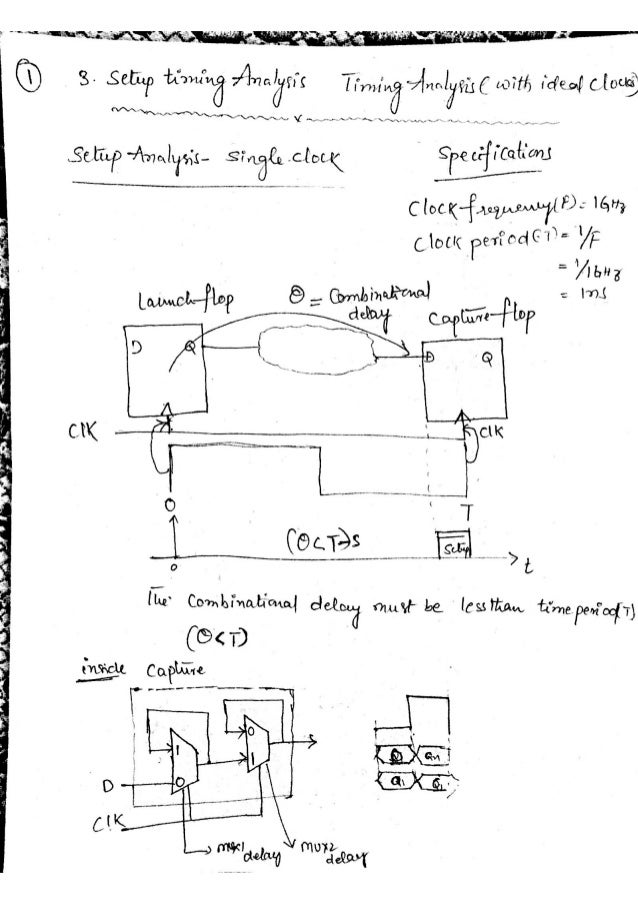 1
3. Setup timing Analysis Timing Analysis (with ideal Clocks)
Setup Analysis - Single clock
Specifications
Clock frequency(F) = 1GHz
Clock period(T) = 1/F
= 1/1GHz
= 1ns
Launch flop
Θ = Combinational
delay
Capture flop
D Q
D Q
CLK
CLK
0
T
0
(Θ<T)-S
Setup
t
The Combinational delay must be less than time period(T)
(Θ<T)
inside Capture
1
0
0
1
D
CLK
mux1
delay
mux2
delay
D
Qm
Q1